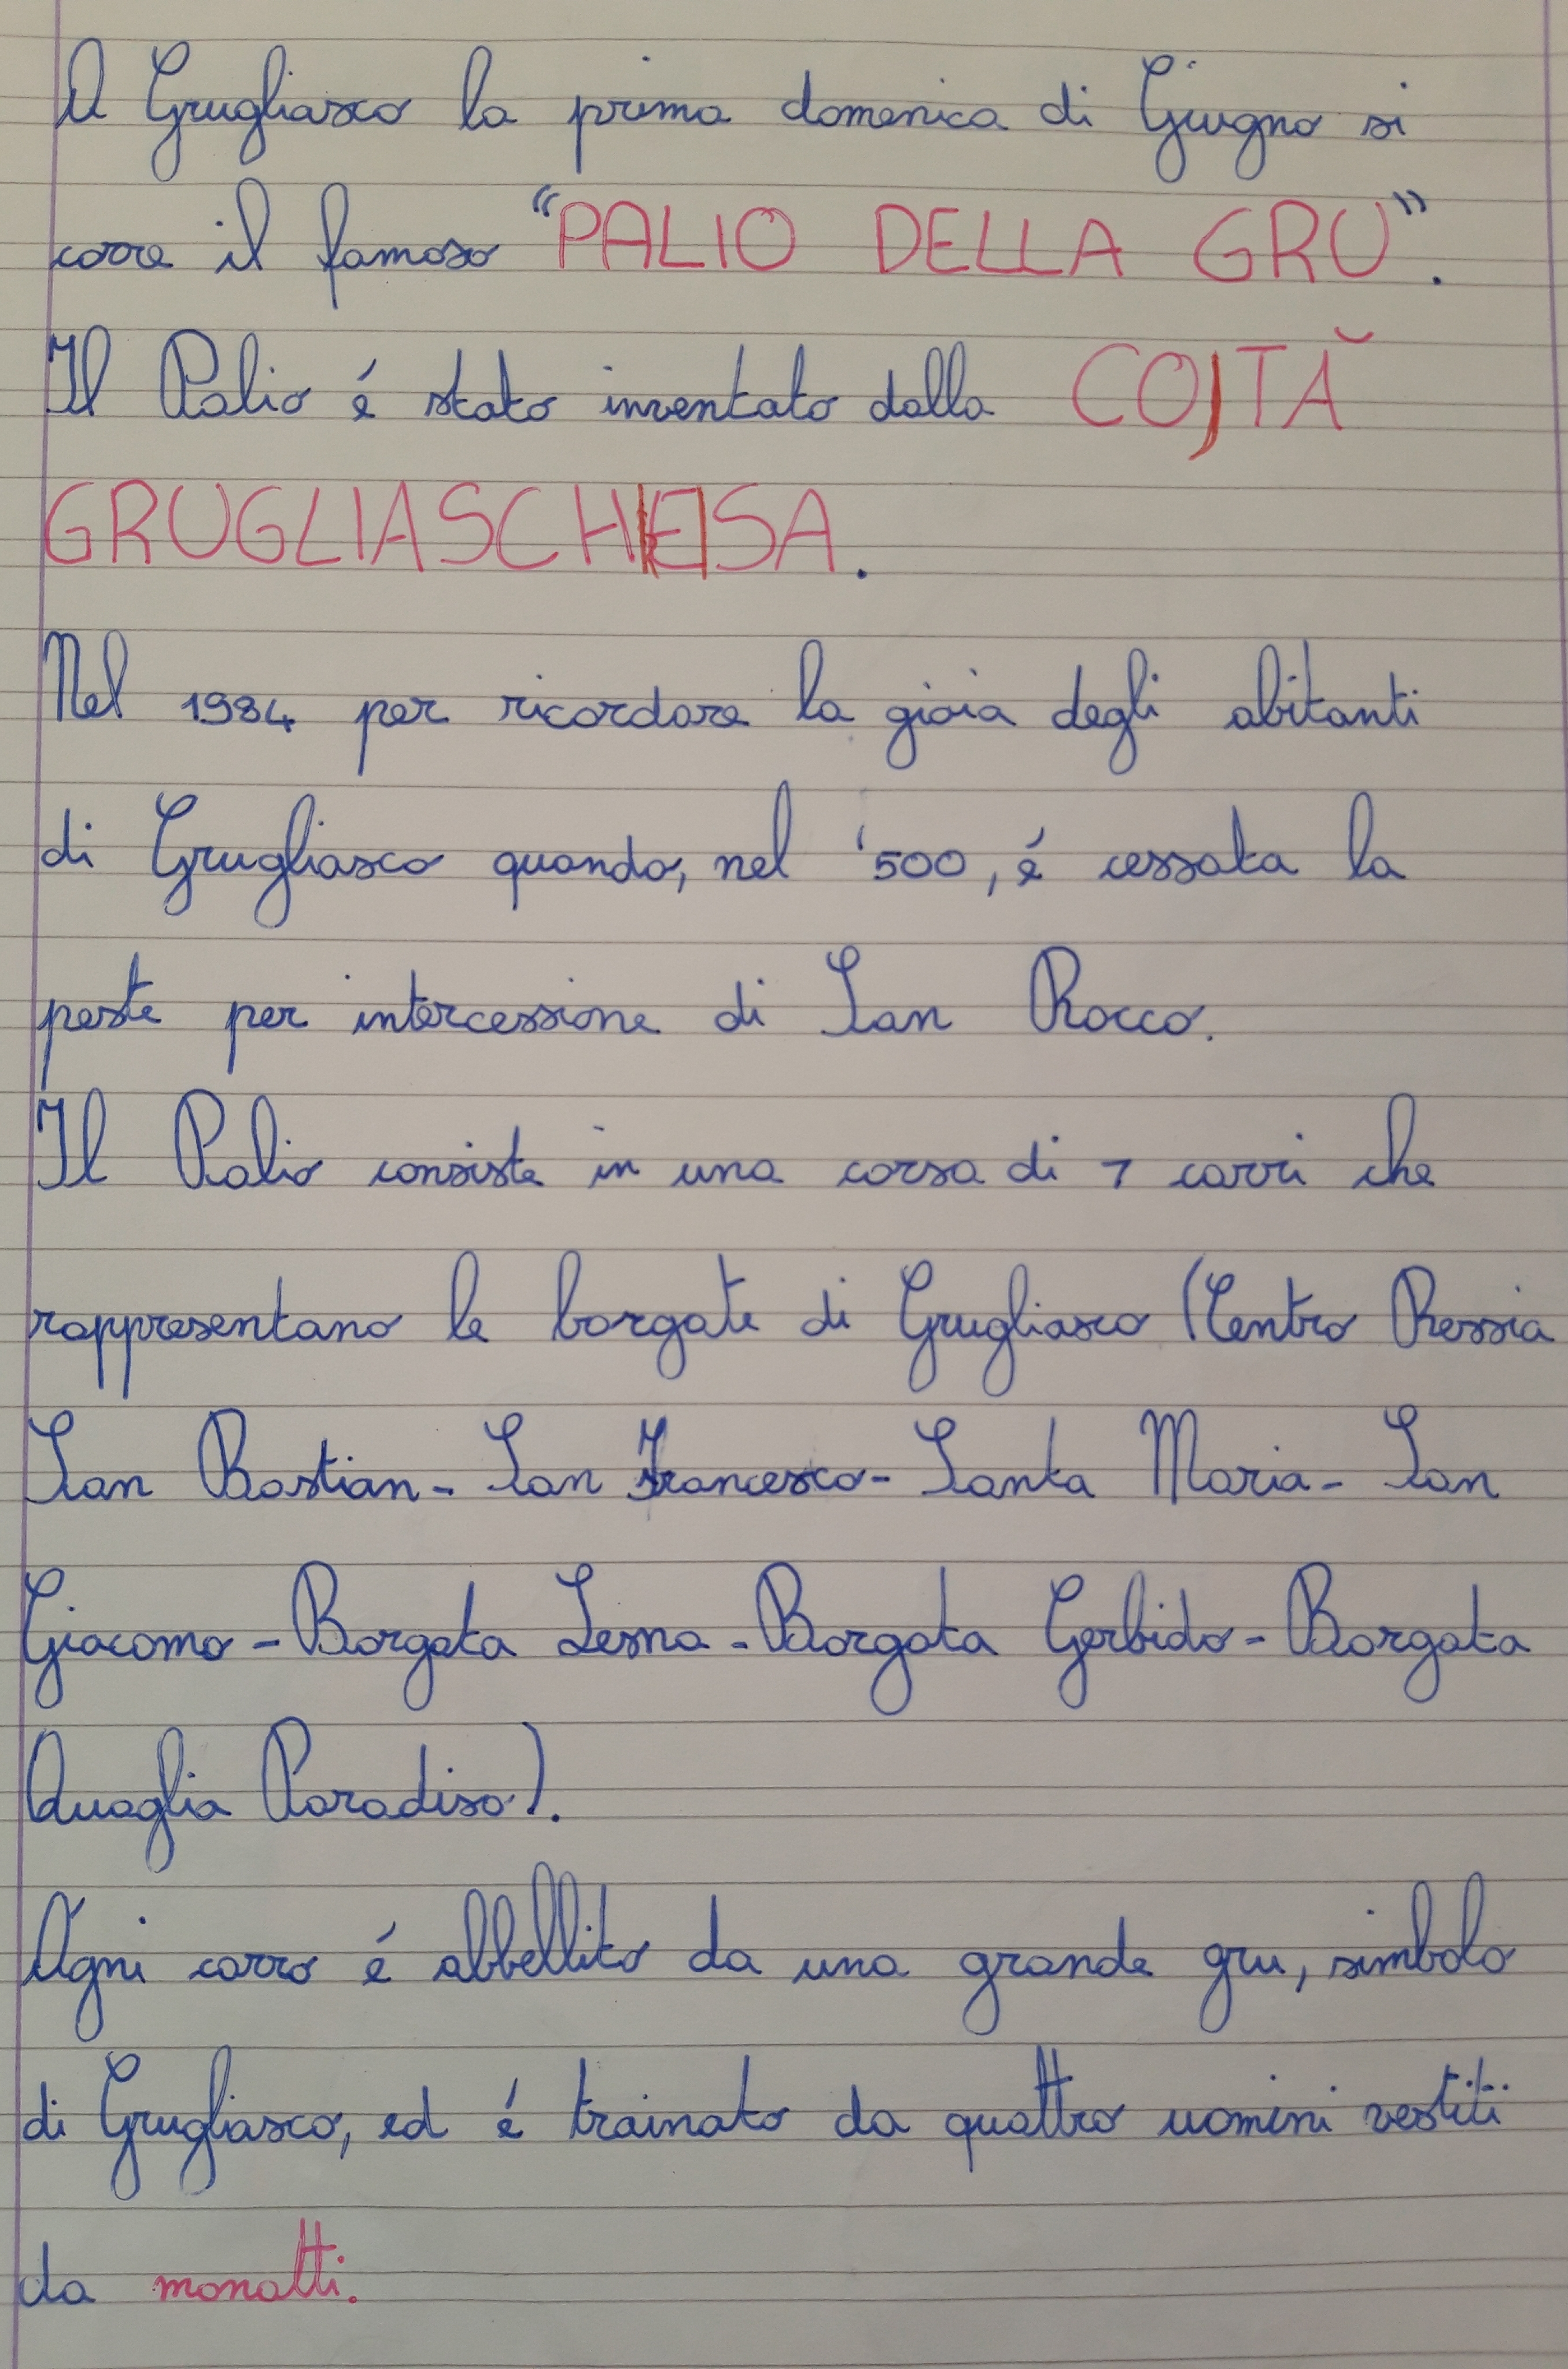 A Grugliasco la prima domenica di Giugno si
corre il famoso "PALIO DELLA GRU".
Il Palio é stato inventato dalla COJTĂ
GRUGLIASCHEISA.
Nel 1984 per ricordare la gioia degli abitanti
di Grugliasco quando, nel '500, é cessata la
peste per intercessione di San Rocco.
Il Palio consiste in una corsa di 7 carri che
rappresentano le borgate di Grugliasco (Centro Ressia
San Bastian - San Francesco - Santa Maria - San
Giacomo - Borgata Lesna - Borgata Gerbido - Borgata
Quaglia Paradiso).
Ogni carro é abbellito da una grande gru, simbolo
di Grugliasco, ed é trainato da quattro uomini vestiti
da monatti.